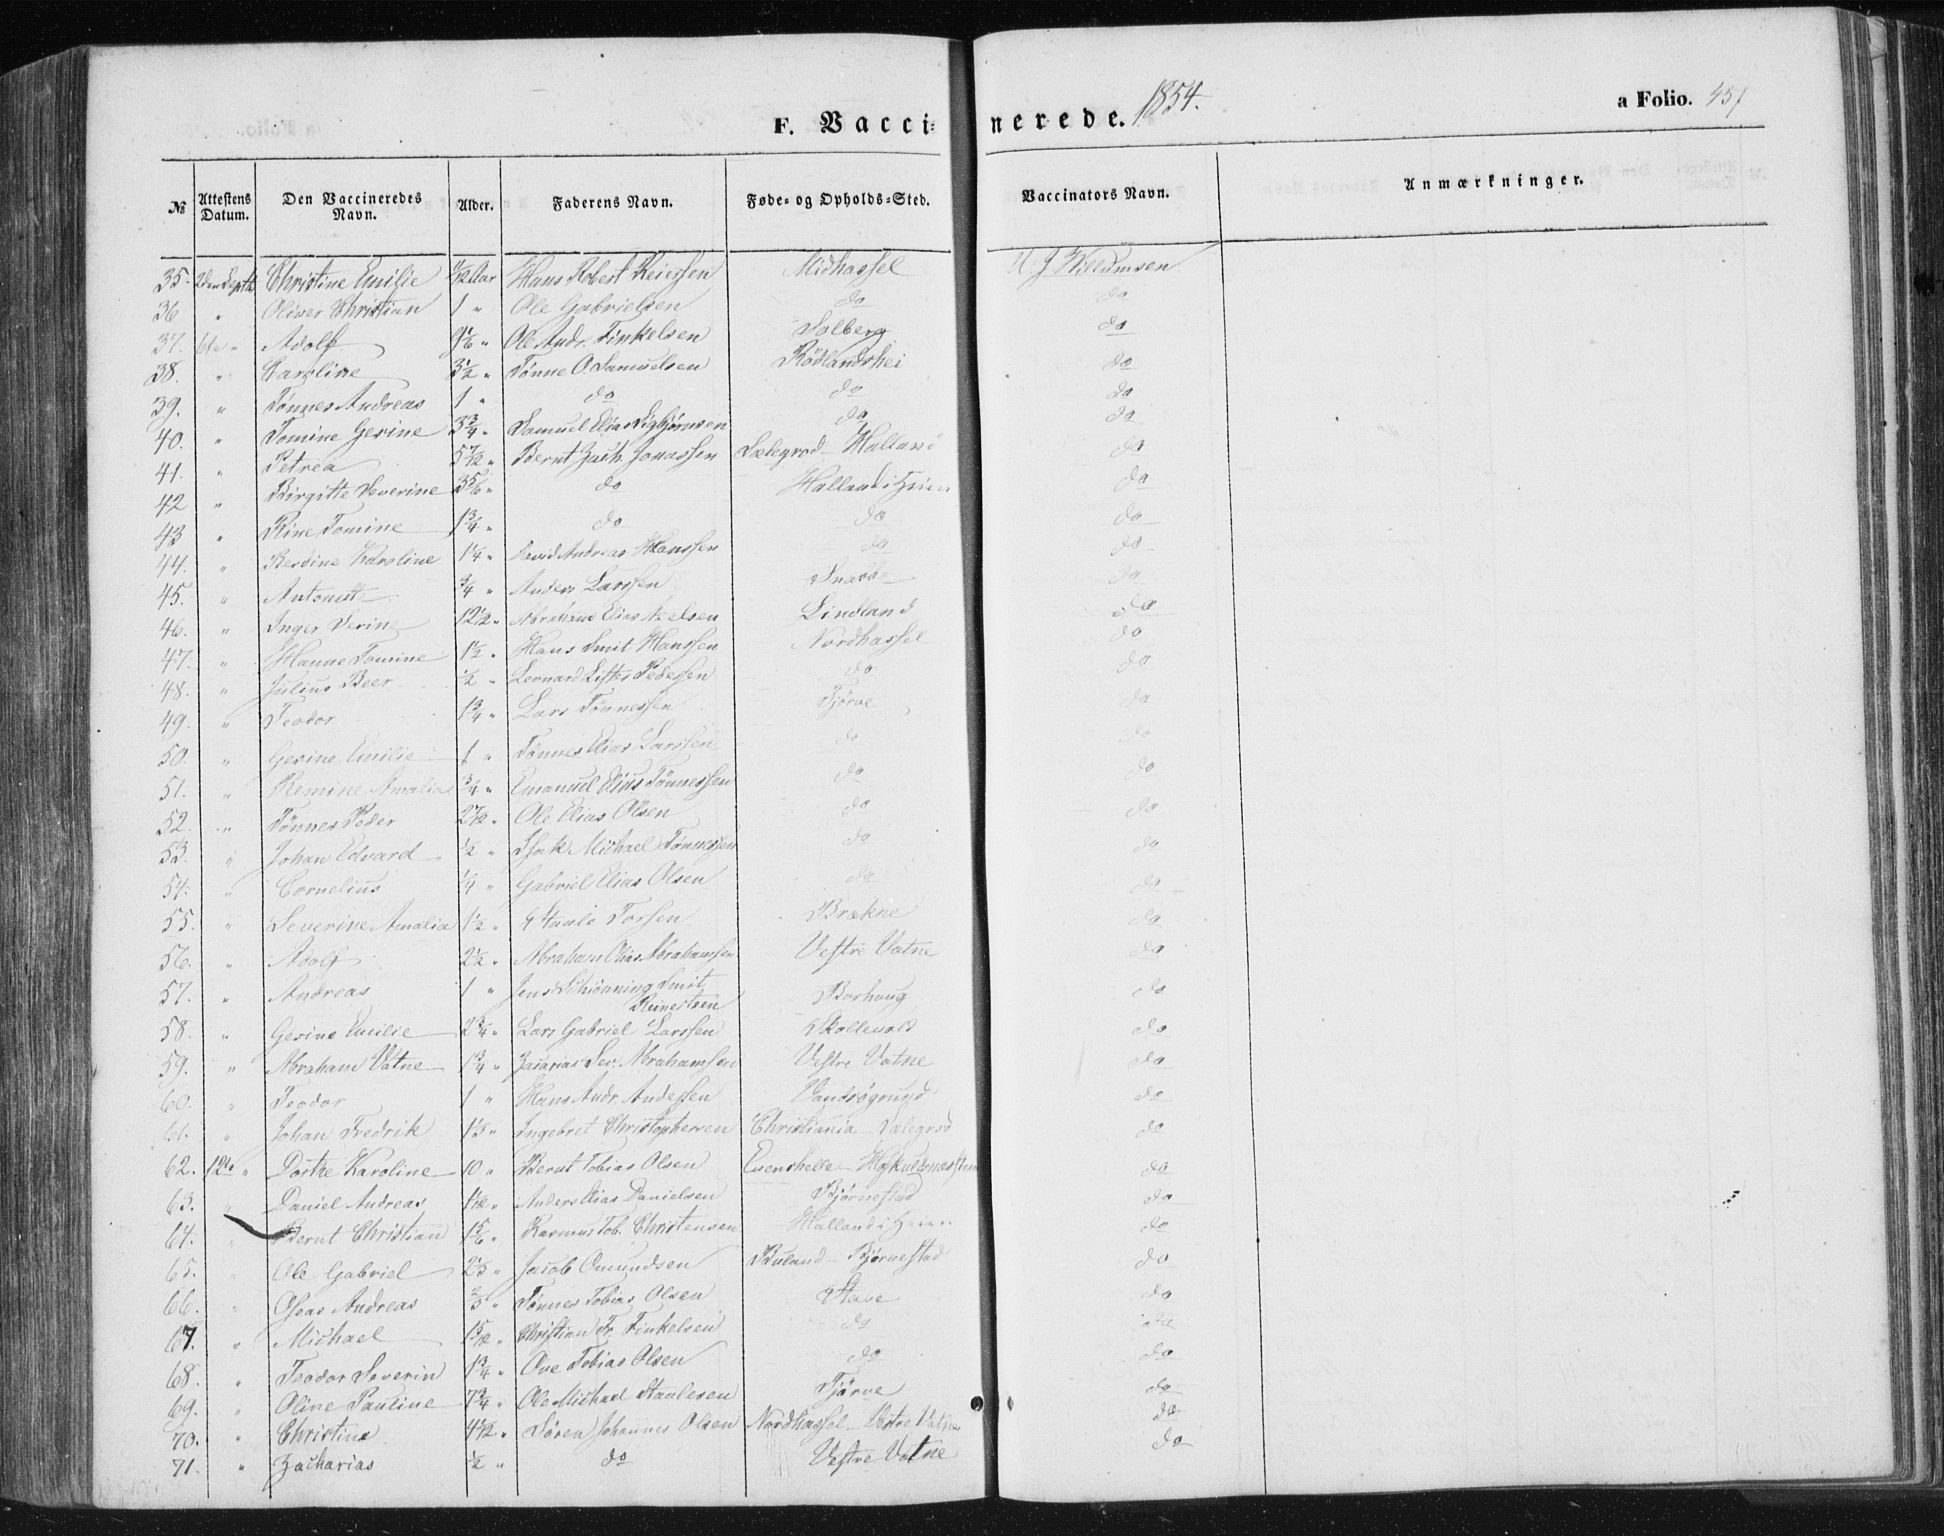 F. Vacci- nerede. 1854. a Folio. 457
№ Attestens Datum. Den Vaccineredes Navn. Alder. Faderens Navn. Føde- og Opholds-Sted. Vaccinators Navn. Anmærkninger.
35. 2den Septbr Christine Emilie Aar Hans Robert Reierssen Midhassel Willumsen
36 " Oliver Christian 1 " Ole Gabrielsen do do
37. 6te " Adolf 9 1/6 " Ole Andr. Tinkelsen Solberg do
38. " Caroline 3 1/2 " Tønne O. Samuelsen Rødlandshei do
39. " Tønnes Andreas 1 " do do do
40. " Tomine Gerine 3 3/4 " Samuel Elias Sigbjørnsen do do
41. " Petrea 5 7/12 " Bernt Zach. Jonassen Sælegrod - Halland do
42 " Birgitte Severine 3 5/6 " do Halland i Heien do
43 " Rine Tomine 1 3/4 " do do do
44. " Berdine Karoline 1 1/4 " David Andreas Hanssen do do
45. " Antonette 3/4 " Anders Larssen do
46. " Inger Serine 12 1/2 " Abraham Elias Nielsen Lindland do
47. " Hanne Tomine 1 1/2 " Hans Smit Hanssen Nordhassel do
48. " Julius Beer 1/2 " Leonard Lister Pedersen do do
49. " Teodor 1 3/4 " Lars Tønnessen Tjørve do
50. " Gerine Emilie 1 " Tønnes Elias Larssen do do
51. " Remine Amalia 3/4 " Emanuel Elias Tønnessen do do
52. " Tønnes Peder 2 7/12 " Ole Elias Olsen do do
53. " Johan Edvard 1/2 " Isak Michael Tønnessen do do
54. " Cornelius 1/4 " Gabriel Elias Olsen do do
55. " Severine Amalia 1 1/2 " Staale Torsen Brækne do
56. " Adolf 2 1/2 " Abraham Elias Abrahamsen Vestre Vatne do
57. " Andreas 1 " Jens Schiønning Smit
Reinertsen Borhaug do
58. " Gesine Emilie 2 3/4 " Lars Gabriel Larssen Skollevold do
59. " Abraham Vatne 1 3/4 " Zacarias Sev. Abrahamsen Vestre Vatne do
60. " Teodor 1 " Hans Andr. Anderssen Vandsøgrund do
61. " Johan Fredrik 1 1/3 " Ingebret Christophersen Christiania - Sælegrod do
62. 12te " Dorthe Karoline 10 " Bernt Tobias Olsen do
63. " Daniel Andreas 1 1/12 " Anders Elias Danielsen Bjørnestad do
64. " Bernt Christian 1 5/6 " Rasmus Tob. Christensen Halland i Heien do
65. " Ole Gabriel 2 1/3 " Jacob Omundsen Buland - Bjørnestad do
66. " Oseas Andreas 2/3 " Tønnes Tobias Olsen Stave do
67. " Michael 1 5/12 " Christian Fr. Tinkelsen do do
68. " Teodor Severin 1 3/4 " Ove Tobias Olsen do do
69. " Oline Pauline 7 3/4 " Ole Michael Staalesen Tjørve do
70. " Christine 4 5/12 " Søren Johannes Olsen Nordhassel - Vestre Vatne do
71. " Zacharias 1/2 " do Vestre Vatne do